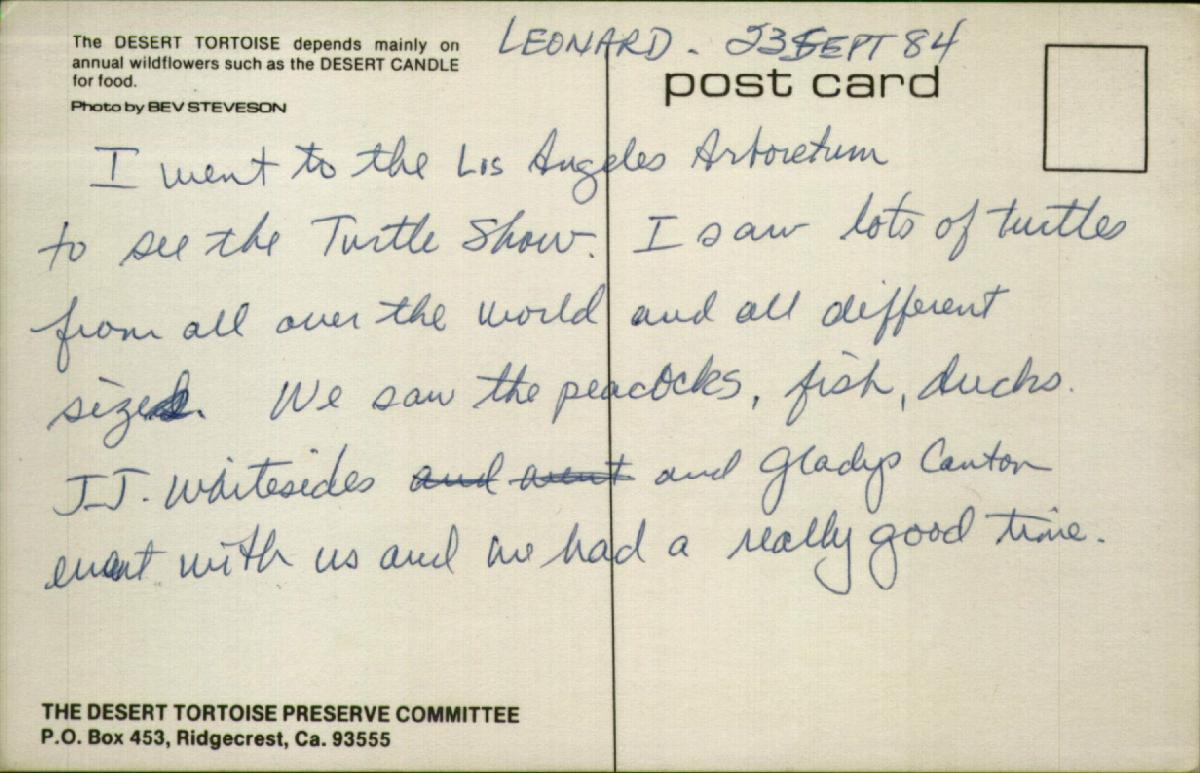 The DESERT TORTOISE depends mainly on
annual wildflowers such as the DESERT CANDLE
for food.
Photo by BEV STEVESON
LEONARD. 23 SEPT 84
post card
I went to the Los Angeles Arboretum
to see the Turtle Show. I saw lots of turtles
from all over the world and all different
sizes. We saw the peacocks, fish, ducks.
J.J. Whitesides and went and Gladys Canton
went with us and we had a really good time.
THE DESERT TORTOISE PRESERVE COMMITTEE
P.O. Box 453, Ridgecrest, Ca. 93555